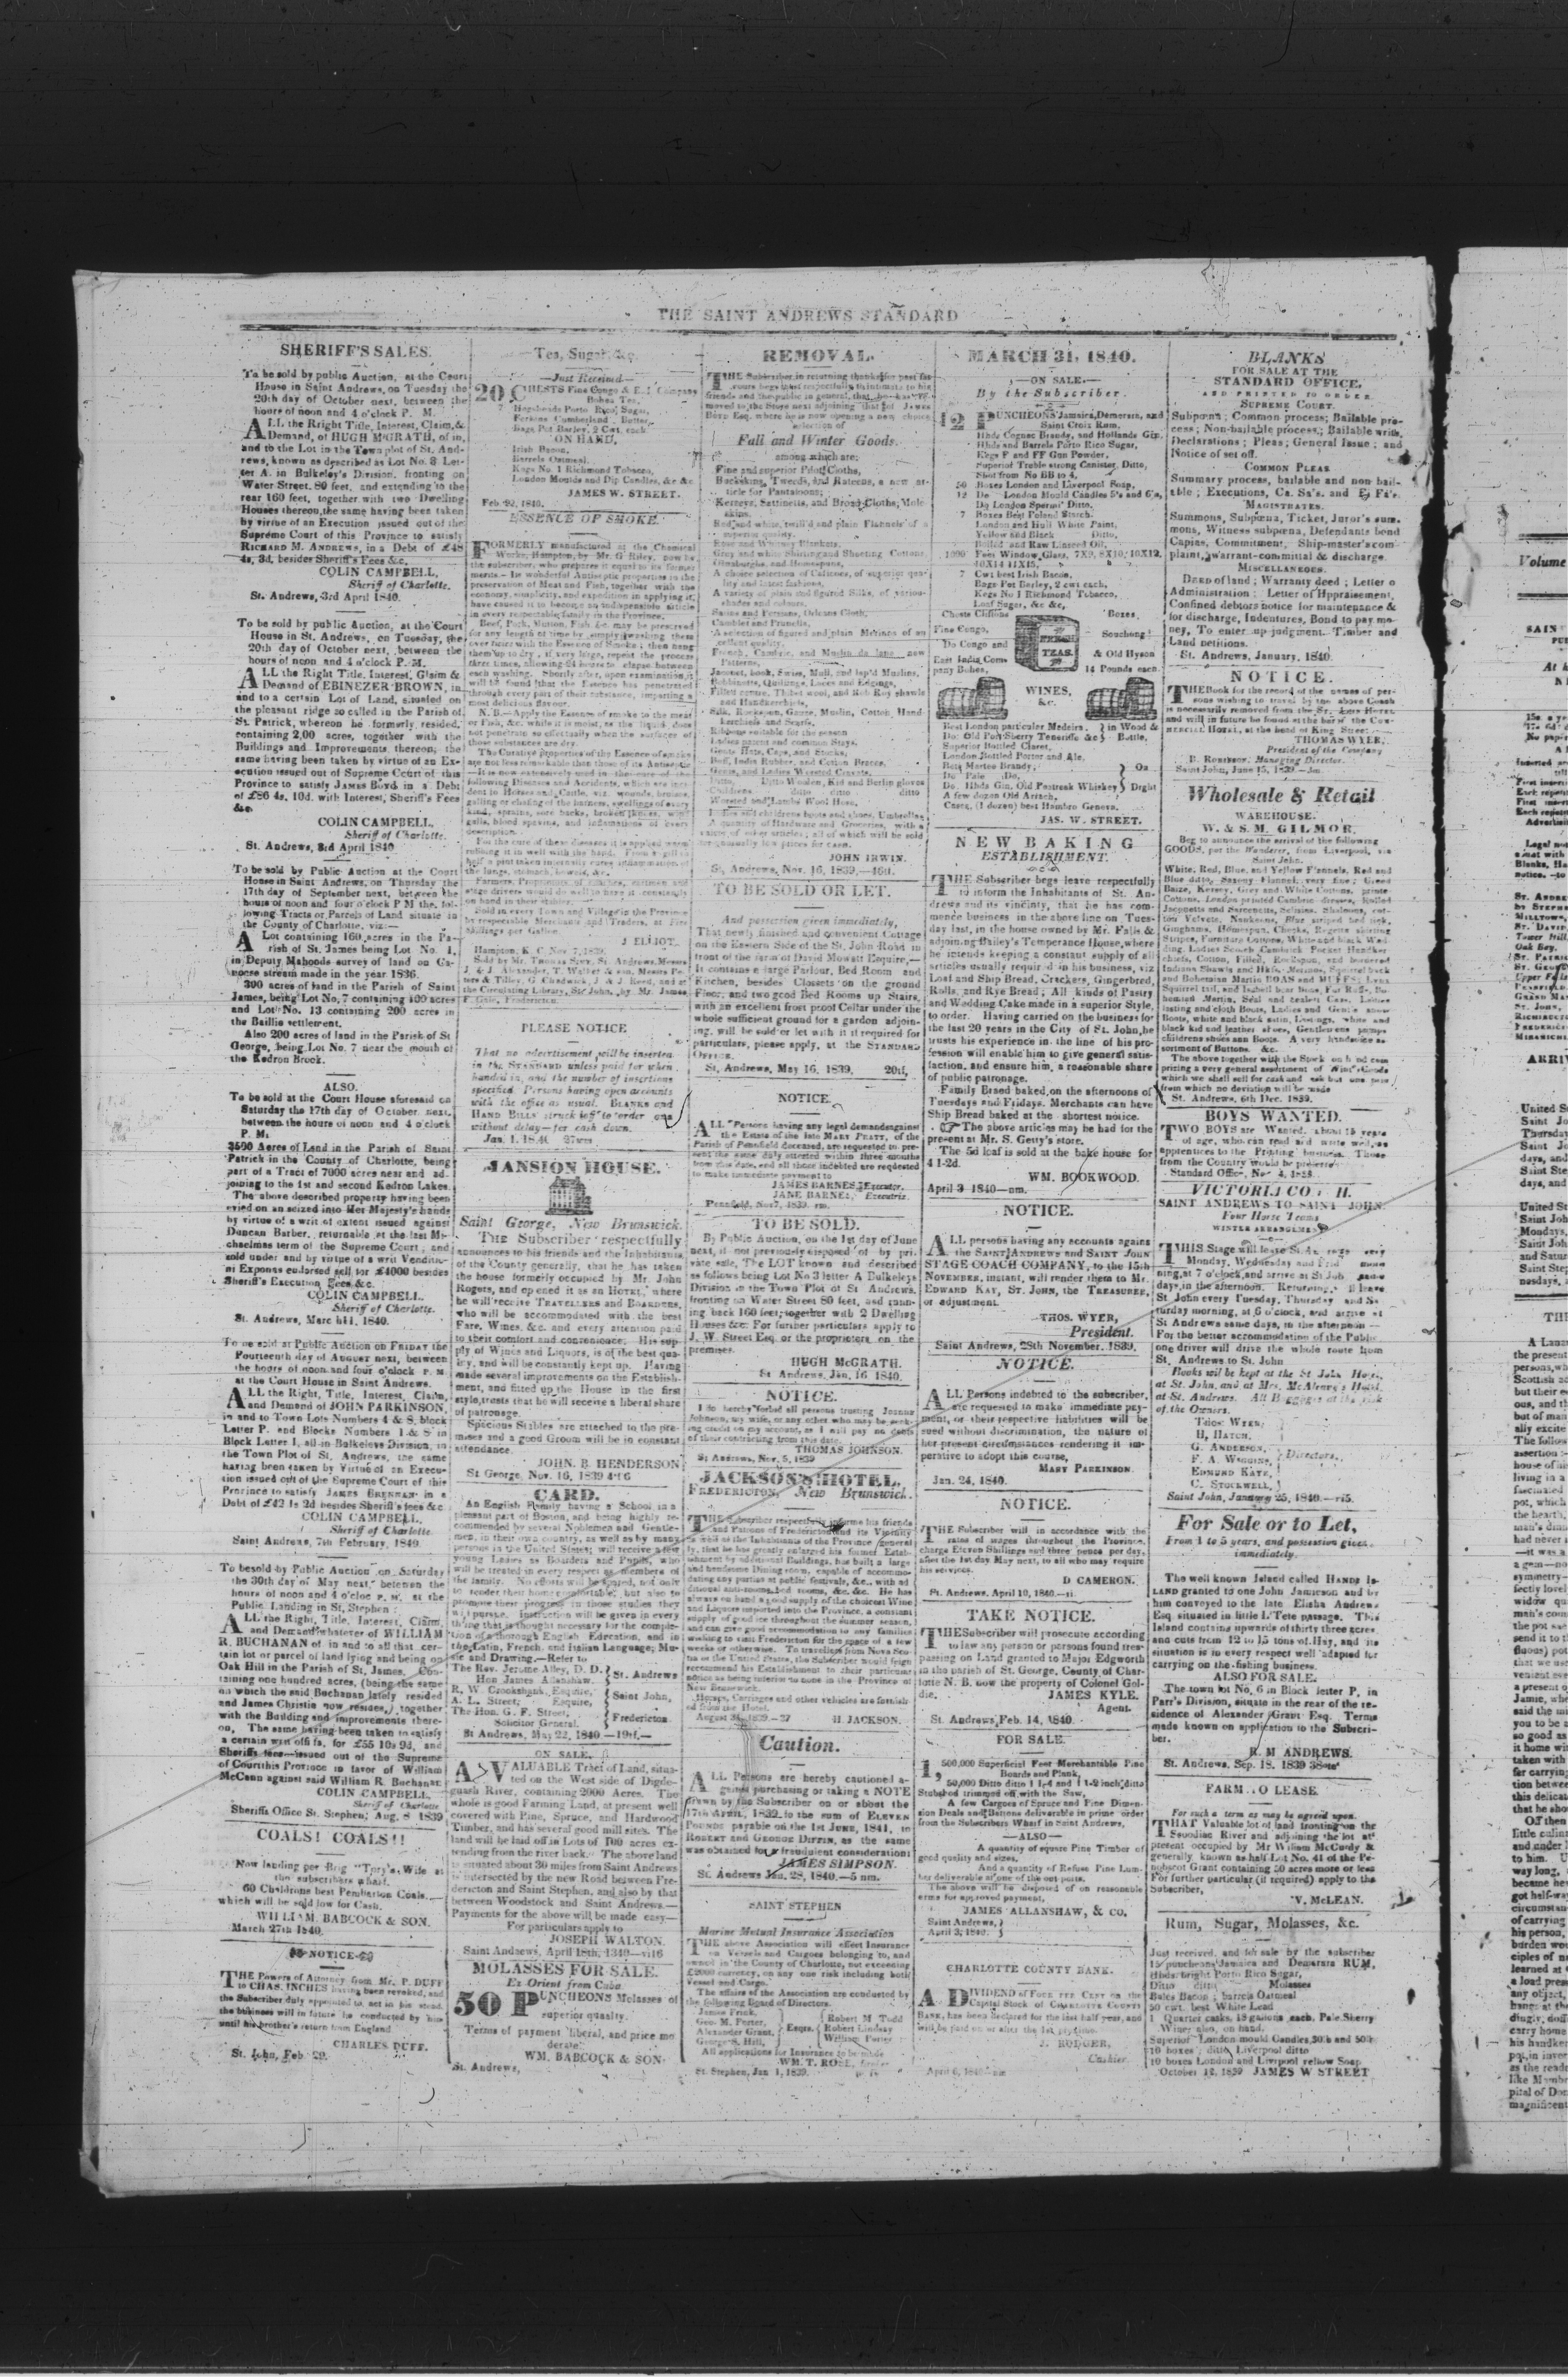 THE SAINT ANDREWS STANDARD
SHERIFF'S SALES.
To be sold by public Auction, at the Court
House in Saint Andrews, on Tuesday the
20th day of October next, between the
hours of noon and 4 o'clock P. M.
ALL the Rright Title, Interest, Claim, &
Demand, of HUGH McGRATH, of in,
and to the Lot in the Town plot of St. And-
rews, known as described as Lot No. 3 Let-
ter A. in Bulkeley's Division, fronting on
Water Street, 80 feet, and extending to the
rear 160 feet, together with two Dwelling
Houses thereon, the same having been taken
by virtue of an Execution issued out of the
Supreme Court of this Province to satisfy
RICHARD M. ANDREWS, in a Debt of £48
4s, 3d, besides Sheriff's Fees &c,
COLIN CAMPBELL,
Sheriff of Charlotte.
St. Andrews, 3rd April 1840.
To be sold by public Auction, at the Court
House in St. Andrews, on Tuesday, the
20th day of October next, between the
hours of noon and 4 o'clock P. M.
ALL the Right Title, Interest, Claim &
Demand of EBINEZER BROWN, in
and to a certain Lot of Land, situated on
the pleasant ridge so called in the Parish of
St. Patrick, whereon he formerly resided,
containing 2,00 acres, together with the
Buildings and Improvements thereon; the
same having been taken by virtue of an Ex-
ecution issued out of Supreme Court of this
Province to satisfy JAMES BOYD in a Debt
of £86 4s, 10d. with Interest, Sheriff's Fees
&c.
COLIN CAMPBELL,
Sheriff of Charlotte.
St. Andrews, 3rd April 1840
To be sold by Public Auction at the Court
House in Saint Andrews, on Thursday the
17th day of September next, between the
hours of noon and four o'clock P M the fol-
lowing Tracts or Parcels of Land situate in
the County of Charlotte, viz:—
A Lot containing 160 acres in the Pa-
rish of St. James being Lot No. 1,
in Deputy Mahoods survey of land on Ca-
noose stream made in the year 1836.
300 acres of land in the Parish of Saint
James, being Lot No. 7 containing 100 acres
and Lot No. 13 containing 200 acres in
the Baillie settlement.
Also 200 acres of land in the Parish of St
George, being Lot No. 7 near the mouth of
the Kedron Brook.
ALSO.
To be sold at the Court House aforesaid on
Saturday the 17th day of October next,
between the hours of noon and 4 o'clock
P. M.
3500 Acres of Land in the Parish of Saint
Patrick in the County of Charlotte, being
part of a Tract of 7000 acres near and ad-
joining to the 1st and second Kedron Lakes.
The above described property having been
evied on an seized into Her Majesty's hands
by virtue of a writ of extent issued against
Duncan Barber, returnable at the last Mi-
chaelmas term of the Supreme Court; and
sold under and by virtue of a writ Venditio-
ni Exponas endorsed sell for £4000 besides
Sheriff's Execution Fees &c.
COLIN CAMPBELL.
Sheriff of Charlotte.
St. Andrews, March 11, 1840.
To be sold at Public Auction on FRIDAY the
Fourteenth day of AUGUST next, between
the hours of noon and four o'clock P. M.
at the Court House in Saint Andrews.
ALL the Right, Title, Interest, Claim,
and Demand of JOHN PARKINSON,
in and to Town Lots Numbers 4 & 8, block
Letter P. and Blocks Numbers 1 & 8 in
Block Letter I, all in Bulkeleys Division, in
the Town Plot of St. Andrews, the same
having been taken by Virtue of an Execu-
tion issued out of the Supreme Court of this
Province to satisfy JAMES BRENNAN in a
Debt of £42 1s 2d besides Sheriff's fees &c.
COLIN CAMPBELL,
Sheriff of Charlotte
Saint Andrews, 7th February, 1840.
To be sold by Public Auction on Saturday
the 30th day of May next, between the
hours of noon and 4 o'cloc P. M, at the
Public Landing in St, Stephen:
ALL the Right, Title, Interest, Claim,
and Demand whatever of WILLIAM
R. BUCHANAN of in and to all that cer-
tain lot or parcel of land lying and being on
Oak Hill in the Parish of St, James, Con-
taining one hundred acres, (being the same
on which the said Buchanan lately resided
and James Christie now resides,) together
with the Building and improvements there-
on, The same having been taken to satisfy
a certain writ of fi fa, for £55 10s 9d, and
Sheriffs fees—issued out of the Supreme
of Court this Province in favor of William
McCann against said William R. Buchanan
COLIN CAMPBELL,
Sheriff of Charlotte
Sheriffs Office St. Stephen, Aug. 8 1839
COALS! COALS!!
Now landing per Brig "Tory's Wife at
the subscribers wharf.
60 Chaldrons best Coals,—
which will be sold low for Cash.
WILLIAM BABCOCK & SON.
March 27th 1840.
NOTICE
THE Powers of Attorney from Mr. P. DUFF
to CHAS. INCHES having been revoked, and
the Subscriber duly appointed to act in his stead,
the business will in future be conducted by him
until his brother's return from England.
CHARLES DUFF.
St. John, Feb 29.
Tea, Sugar, &c.
—Just Received—
20 CHESTS Fine Congo & E. I Company
Bohea Tea,
7 Hogsheads Porto Rico Sugar,
Ferkins Cumberland Butter,
Bags Pot Barley, 2 Cwt, each
ON HAND.
Irish Bacon,
Barrels Oatmeal,
Kegs No. 1 Richmond Tobacco,
London Moulds and Dip Candles, &c &c
JAMES W. STREET.
Feb 22, 1840.
ESSENCE OF SMOKE.
FORMERLY manufactured at the Chemical
Works, Hampton, by Mr. G Riley, now by
the subscriber, who prepares it equal to its former
merits.—Its wonderful Antiseptic properties in the
preservation of Meat and Fish, together with the
economy, simplicity, and expedition in applying it,
have caused it to become an indispensible article
in every respectable family in the Province.
Beef, Pork, Mutton, Fish &c. may be preserved
for any length of time by simply washing them
over twice with the Essence of Smoke; then hang
them up to dry, if very large, repeat the process
three times, allowing 24 hours to elapse between
each washing. Shortly after, upon examination, it
will be found that the Essence has penetrated
through every part of their substance, imparting a
most delicious flavour.
N. B.—Apply the Essence of smoke to the meat
or Fish, &c. while it is moist, as the liquid does
not penetrate so effectually when the surfaces of
those substances are dry.
The Curative properties of the Essence of smoke
are not less remarkable than those of its Antiseptic
—It is now extensively used in the cure of the
following Diseases and Accidents, which are inci
dent to Horses and Cattle, viz. wounds, bruises,
galling or chafing of the harness, swellings of every
kind, sprains, sore backs, broken knees, wind
galls, blood spavins, and inflamations of every
description.
For the cure of these diseases it is applied warm
rubbing it in well with the hand. From a gill to
half a pint taken internally cures inflammation of
the lungs, stomach, bowels, &c.
Farmers, Proprietors of coaches, cartmen and
stage drivers would do well to have it constantly
on hand in their stables.
Sold in every Town and Village in the Province
by respectable Merchants and Traders, at Five
Shillings per Gallon.
J ELLIOT.
Hampton, K. C. Nov. 7, 1839.
Sold by Mr. Thomas Sime, St. Andrews, Messrs
J. & J. Alexander, T. Walker & son, Messrs Pe-
ters & Tilley, G Chadwick, J & J Reed, and at
the Circulating Library, St. John, by Mr. James
F. Gale, Fredericton.
PLEASE NOTICE
That no advertisement will be inserted
in the STANDARD unless paid for when
handed in, and the number of insertions
specified. Persons having open accounts
with the office as usual. BLANKS and
HAND BILLS struck off to order and
without delay—for cash down.
Jan. 1. 1840
MANSION HOUSE.
Saint George, New Brunswick.
THE Subscriber respectfully
announces to his friends and the Inhabitants
of the County generally, that he has taken
the house formerly occupied by Mr. John
Rogers, and opened it as an HOTEL, where
he will receive TRAVELLERS and BOARDERS,
who will be accommodated with the best
Fare, Wines, &c. and every attention paid
to their comfort and convenience. His sup-
ply of Wines and Liquors, is of the best qua-
lity, and will be constantly kept up. Having
made several improvements on the Establish-
ment, and fitted up the House in the first
style, trusts that he will receive a liberal share
of patronage.
Spacious Stables are attached to the pre-
mises and a good Groom will be in constant
attendance.
JOHN. B. HENDERSON
St George, Nov. 16, 1839
CARD.
An English Family having a School in a
pleasant part of Boston, and being highly re-
commended by several Noblemen and Gentle-
men, in their own country, as well as by many
persons in the United States; will receive a few
young Ladies as Boarders and Pupils, who
will be treated in every respect as members of
the family. No efforts will be spared, not only
to render their home comfortable, but also to
promote their progress in those studies they
will pursue. Instruction will be given in every
thing that is thought necessary for the comple-
tion of a thorough English Education, and in
the Latin, French, and Italian Language; Mu-
sic and Drawing.—Refer to
The Rev. Jerome Alley, D. D.
Hon James Allanshaw. } St. Andrews
R, W. Crookshank, Esquire,
A. L. Street, Esquire, } Saint John,
The Hon. G. F. Street,
Solicitor General. } Fredericton
St Andrews, May 22, 1840 —19tf.—
ON SALE.
A VALUABLE Tract of Land, situa-
ted on the West side of Digde-
guash River, containing 2000 Acres. The
whole is good Farming Land, at present well
covered with Pine, Spruce, and Hardwood
Timber, and has several good mill sites. The
land will be laid off in Lots of 100 acres ex-
tending from the river back. The above land
is situated about 30 miles from Saint Andrews
is intersected by the new Road between Fre-
dericton and Saint Stephen, and also by that
between Woodstock and Saint Andrews.—
Payments for the above will be made easy—
For particulars apply to
JOSEPH WALTON.
Saint Andrews, April 18th, 1840—vi16
MOLASSES FOR SALE.
Ex Orient from Cuba
50 PUNCHEONS Molasses of
superior quality.
Terms of payment liberal, and price mo
derate
WM. BABCOCK & SON.
St. Andrews,
REMOVAL.
THE Subscriber in returning thanks for past fa-
vours begs most respectfully to intimate to his
friends and the public in general, that he has re-
moved to the Store next adjoining that of JAMES
BOYD Esq. where he is now opening a new choice
selection of
Fall and Winter Goods.
among which are;
Fine and superior Pilot Cloths,
Buckskins, Tweeds, and Kateens, a new ar-
ticle for Pantaloons;
Kerseys, Sattinetts, and Broad Cloths, Mole
skins.
Red and white, twill'd and plain Flannels of a
superior quality.
Rose and Whitney Blankets,
Grey and white Shirting and Sheeting Cottons,
Osnaburghs, and Homespuns,
A choice selection of Calicoes, of superior qua-
lity and latest fashions,
A variety of plain and figured Silks, of various
shades and colours.
Satins and Persians, Orleans Cloth,
Camblet and Prunella,
A selection of figured and plain Merinos of an
excellent quality.
French, Cambric, and Muslin da lane new
Patterns,
Jaconet, book, Swiss, Mull, and lap'd Muslins,
Bobbinetts, Quillings, Laces and Edgings,
Filled centre, Thibet wool, and Rob Roy shawls
and Handkerchiefs,
Silk, Rockspun, Gauze, Muslin, Cotton Hand
kerchiefs and Scarfs,
Ribbons suitable for the season
Ladies patent and common Stays,
Gents Hats, Caps, and Stocks,
Buff, India Rubber, and Cotton Braces,
Gents, and Ladies Worsted Cravats,
Ditto, Ditto Woolen, Kid and Berlin gloves
Childrens ditto ditto ditto
Worsted and Lambs Wool Hose,
Ladies and childrens boots and shoes, Umbrellas
A quantity of Hardware and Groceries, with a
variety of other articles; all of which will be sold
for unusually low prices for cash.
JOHN IRWIN.
St, Andrews, Nov. 16, 1839,—46tf.
TO BE SOLD OR LET.
And possession given immediately,
That newly finished and convenient Cottage
on the Eastern Side of the St. John Road in
front of the farm of David Mowatt Esquire,—
It contains a large Parlour, Bed Room and
Kitchen, besides Clossets on the ground
Floor, and two good Bed Rooms up Stairs,
with an excellent frost proof Cellar under the
whole sufficient ground for a gardon adjoin-
ing, will be sold or let with it if required for
particulars, please apply, at the STANDARD
OFFICE.
St, Andrews, May 16, 1839, 20tf,
NOTICE.
ALL Persons having any legal demands against
the Estate of the late MARY PRATT, of the
Parish of Pennfield deceased, are requested to pre-
sent the same duly attested within three months
from this date, and all those indebted are requested
to make immediate payment to
JAMES BARNES, Executor.
JANE BARNES, Executrix.
Pennfield, Nov 7, 1839.
TO BE SOLD.
By Public Auction, on the 1st day of June
next, if not previously disposed of by pri-
vate sale, The LOT known and described
as follows being Lot No 3 letter A Bulkeleys
Division in the Town Plot of St Andrews,
fronting on Water Street 80 feet, and run-
ing back 160 feet, together with 2 Dwelling
Houses &c. For further particulars apply to
J. W. Street Esq. or the proprietors on the
premises.
HUGH McGRATH.
St Andrews, Jan, 16 1840.
NOTICE.
I do hereby forbid all persons trusting Joanna
Johnson, my wife, or any other who may be seek-
ing credit on my account, as I will pay no debts
of their contracting from this date.
THOMAS JOHNSON.
St Andrews, Nov. 5, 1839
JACKSON'S HOTEL,
FREDERICTON, New Brunswick.
THE Subscriber respectfully informs his friends
and Patrons of Fredericton and its Vicinity
as well as the Inhabitants of the Province general
ly, that he has greatly enlarged his former Estab-
lishment by additional Buildings, has built a large
and handsome Dining room, capable of accommo-
dating any parties at public festivals, &c., with ad
ditional anti-rooms, bed rooms, &c. &c. He has
always on hand a good supply of the choicest Wine
and Liquors imported into the Province, a constant
supply of good ice throughout the summer season,
and can give good accommodation to any families
wishing to visit Fredericton for the space of a few
weeks or otherwise. To travellers from Nova Sco-
tia or the United States, the Subscriber would feign
recommend his Establishment to their particular
notice as being inferior to none in the Province of
New Brunswick.
Horses, Carriages and other vehicles are furnish-
ed from the Hotel.
August 31, 1839—27 H. JACKSON.
Caution.
ALL Persons are hereby cautioned a-
gainst purchasing or taking a NOTE
drawn by the Subscriber on or about the
17th APRIL, 1839, to the sum of ELEVEN
POUNDS payable on the 1st JUNE, 1841, to
ROBERT and GEORGE DIFFIN, as the same
was obtained for a fraudulent consideration:
JAMES SIMPSON.
St. Andrews Jan. 28, 1840.—5 nm.
SAINT STEPHEN
Marine Mutual Insurance Association
THE above Association will effect Insurance
on Vessels and Cargoes belonging to, and
owned in the County of Charlotte, not exceeding
£2000 currency, on any one risk including both
Vessel and Cargo.
The affairs of the Association are conducted by
the following Board of Directors.
James Frink,
Geo. M. Porter,
Alexander Grant,
George S. Hill, } Esqrs. { Robert M Todd
Robert Lindsay
William Porter
All applications for Insurance to be made
WM. T. ROSE,
St. Stephen, Jan 1, 1839.
MARCH 31, 1840.
—ON SALE.—
By the Subscriber.
12 PUNCHEONS Jamaica, Demerara, and
Saint Croix Rum.
Hhds Cognac Brandy, and Hollands Gin.
Hhds and Barrels Porto Rico Sugar,
Kegs F and FF Gun Powder,
Superior Treble strong Canister Ditto,
Shot from No BB to 4,
50 Boxes London and Liverpool Soap,
12 Do London Mould Candles 5's and 6's,
Do London Sperm' Ditto,
7 Boxes Best Poland Starch.
London and Hull White Paint,
Yellow and Black Ditto,
Boiled and Raw Linseed Oil,
1000 Feet Window Glass, 7X9, 8X10, 10X12,
10X14 11X15,
7 Cwt best Irish Bacon,
Bags Pot Barley, 2 cwt each,
Kegs No 1 Richmond Tobacco,
Loaf Sugar, &c &c,
Chests Boxes,
Fine Congo, Souchong
Do Congo and & Old Hyson
East India Com
pany Bohea, 14 Pounds each.
FRESH
TEAS.
WINES,
&c.
Best London particular Medeira, } in Wood &
Do. Old Port Sherry Teneriffe &c } Bottle,
Superior Bottled Claret,
London Bottled Porter and Ale,
Best Martee Brandy,
Do Pale Do,
Do. Hhds Gin, Old Peatreak Whiskey } On
Drght
A few dozen Old Arrack,
Cases, (1 dozen) best Hambro Geneva.
JAS. W. STREET.
NEW BAKING
ESTABLISHMENT.
THE Subscriber begs leave respectfully
to inform the Inhabitants of St. An-
drews and its vincinty, that he has com-
menced business in the above line on Tues-
day last, in the house owned by Mr. Falls &
adjoining Bailey's Temperance House, where
he intends keeping a constant supply of all
articles usually required in his business, viz
Loaf and Ship Bread, Crackers, Gingerbred,
Rolls, and Rye Bread; All kinds of Pastry
and Wedding Cake made in a superior Style,
to order. Having carried on the business for
the last 20 years in the City of St. John, he
trusts his experience in the line of his pro-
fession will enable him to give general satis-
faction, and ensure him, a reasonable share
of public patronage.
Family Bread baked on the afternoons of
Tuesdays and Fridays. Merchants can have
Ship Bread baked at the shortest notice.
☞ The above articles may be had for the
present at Mr. S. Getty's store.
The 5d loaf is sold at the bake house for
4 1-2d.
WM. BOOKWOOD.
April 3 1840—nm.
NOTICE.
ALL persons having any accounts agains
the SAINT ANDREWS and SAINT JOHN
STAGE COACH COMPANY, to the 15th
NOVEMBER, instant, will render them to Mr.
EDWARD KAY, ST. JOHN, the TREASURER,
or adjustment.
THOS. WYER,
President.
Saint Andrews, 28th November, 1839.
NOTICE.
ALL Persons indebted to the subscriber,
are requested to make immediate pay-
ment, or their respective liabilities will be
sued without discrimination, the nature of
her present circumstances rendering it im-
perative to adopt this course,
MARY PARKINSON.
Jan. 24, 1840.
NOTICE.
THE Subscriber will in accordance with the
rates of wages throughout the Province,
charge Eleven Shillings and three pence per day,
after the 1st day May next, to all who may require
his services.
D CAMERON.
St. Andrews, April 10, 1840.
TAKE NOTICE.
THE Subscriber will prosecute according
to law any person or persons found tres-
passing on Land granted to Major Edgworth
in the parish of St. George, County of Char-
lotte N. B. now the property of Colonel Gol-
die. JAMES KYLE.
Agent.
St. Andrews, Feb. 14, 1840.
FOR SALE
1,500,000 Superficial Feet Merchantable Pine
Boards and Plank,
50,000 Ditto ditto 1 1-4 and 1 1-2 inch ditto
Stubshed trimmed off, with the Saw,
A few Cargoes of Spruce and Fine Dimen-
sion Deals and Battens deliverable in prime order
from the Subscribers Wharf in Saint Andrews,
—ALSO—
A quantity of square Pine Timber of
good quality and sizes,
And a quantity of Refuse Pine Lum-
ber deliverable at one of the out ports.
The above will be disposed of on reasonable
erms for approved payment,
JAMES ALLANSHAW, & CO,
Saint Andrews,
April 3, 1840.
CHARLOTTE COUNTY BANK.
A DIVIDEND of FOUR PER CENT on the
Capital Stock of CHARLOTTE COUNTY
BANK, has been declared for the last half year, and
will be paid on or after the 1st
J. RODGER,
Cashier
April 6, 1840—nm
BLANKS
FOR SALE AT THE
STANDARD OFFICE,
AND PRINTED TO ORDER
SUPREME COURT.
Subpœna; Common process; Bailable pro-
cess; Non-bailable process; Bailable writs,
Declarations; Pleas; General Issue; and
Notice of set off.
COMMON PLEAS
Summary process, bailable and non bail-
able; Executions, Ca. Sa's. and Fi Fa's.
MAGISTRATES.
Summons, Subpœna, Ticket, Juror's sum-
mons, Witness subpœna, Defendants bond
Capias, Commitment, Ship-master's com
plaint, warrant-committal & discharge.
MISCELLANEOUS.
DEED of land; Warranty deed; Letter o
Administration; Letter of Appraisement,
Confined debtors notice for maintenance &
for discharge, Indentures, Bond to pay mo-
ney, To enter up judgment. Timber and
Land petitions.
St. Andrews, January, 1840.
NOTICE.
THE Book for the record of the names of per-
sons wishing to travel by the above Coach
is necessarily removed from the St. John Hotel
and will in future be found at the bar of the COM-
MERCIAL HOTEL, at the head of King Street.
THOMAS WYER,
President of the Company
B. ROBINSON, Managing Director.
Saint John, June 15, 1839.—3m.
Wholesale & Retail
WAREHOUSE.
W. & S. M. GILMOR,
Beg to announce the arrival of the following
GOODS, per the Wanderer, from Liverpool, via
Saint John.
White, Red, Blue, and Yellow Flannels, Red and
Blue ditto, Saxony Flannel, very fine; Green
Baize, Kersey, Grey and White Cottons, printe
Cottons, London printed Cambric dresses, Rolled
Jaconetts and Sarsenetts, Selisias, Shaloons, cot-
ton Velvets, Nankeens, Blue striped bed tick,
Ginghams, Homespun, Checks, Regatta shirting
Stripes, Furniture Cottons, White and black Wad-
ding, Ladies Scotch Cambrick Pocket Handker
chiefs, Cotton, Filled, Rockspun, and bordered
Indiana Shawls and Hkfs, Merinos, Squirrel back
and Bohemian Martin BOAS and MUFFS; Lynx
Squirrel tail, and Isabell bear Boas, Fur Ruffs, Bo-
hemian Martin, Seal and sealett Caps. Ladies
lasting and cloth Boots, Ladies and Gents snow
Boots, white and black satin, Lastings, white and
black kid and leather shoes, Gentlemens pumps
childrens shoes and Boots. A very handsome as-
sortment of Buttons, &c.
The above together with the Stock on hand com
prizing a very general assortment of Wint. Goods
which we shall sell for cash and ask but one price
from which no deviation will be made
St. Andrews, 6th Dec. 1839.
BOYS WANTED.
TWO BOYS are Wanted, about 15 years
of age, who can read and write well, as
apprentices to the Printing business. Those
from the Country would be preferred
Standard Office, Nov 4, 1839.
VICTORIA CO H.
SAINT ANDREWS TO SAINT JOHN.
Four Horse Teams
WINTER ARRANGEMENT
THIS Stage will leave St. An rews very
Monday, Wednesday and Frid morn
ning, at 7 o'clock, and arrive at St Joh same
days, in the afternoon. Returning, ll leave
St John every Tuesday, Thursday and Sa
turday morning, at 6 o'clock, and arrive at
St Andrews same days, in the afternoon—
For the better accommodation of the Public
one driver will drive the whole route from
St, Andrews to St. John
Books will be kept at the St John Hotel,
at St. John, and at Mrs. McAleney's Hotel,
at St-Andrews. All Baggages at the risk
of the Owners.
THOS: WYER,
H, HATCH,
G. ANDERSON,
F. A. WIGGINS,
EDMUND KAYE,
C. STOCKWELL, } Directors.
Saint John, January 25, 1840.—vi5.
For Sale or to Let,
From 1 to 5 years, and possession given
immediately.
The well known Island called HANDS IS-
LAND granted to one John Jamieson and by
him conveyed to the late Elisha Andrews
Esq. situated in little L'Tete passage. This
Island contains upwards of thirty three acres
and cuts from 12 to 15 tons of Hay, and its
situation is in every respect well adapted for
carrying on the fishing business.
ALSO FOR SALE.
The town lot No, 6 in Block letter P, in
Parr's Division, situate in the rear of the re-
sidence of Alexander Grant Esq. Terms
made known on application to the Subscri-
ber.
R. M ANDREWS.
St. Andrews, Sep. 18. 1839
FARM .O LEASE.
For such a term as may be agreed upon.
THAT Valuable lot of land fronting on the
Scoodiac River and adjoining the lot at
present occupied by Mr William McCurdy &
generally known as half Lot No. 41 of the Pe-
nobscot Grant containing 50 acres more or less
For further particular, (if required) apply to the
Subscriber,
V. McLEAN.
Rum, Sugar, Molasses, &c.
Just received, and for sale by the subscriber
15 puncheons Jamaica and Demarara RUM,
Hhds. bright Porto Rico Sugar,
Ditto ditto Molasses
Bales Bacon; barrels Oatmeal
50 cwt. best White Lead
1 Quarter casks, 18 gallons each, Pale Sherry
Wine; also, on hand.
Superior London mould Candles, 30 b and 50 b
10 boxes ditto Liverpool ditto
10 boxes London and Liverpool yellow Soap
October 12, 1839 JAMES W STREET
Volume
SAIN
At
No pap
Each
Legal no
Blanks, Ha
notice, —to
MILLTOWN,
Tower Hill,
Oak Bay,
Upper Falls
ST. JOHN,
ARRIV
United S
Saint Jo
Thursday
days, and
Saint Ste
days, and
United St
Saint Joh
Mondays,
Saint Joh
and Satur
Saint Step
nesdays,
THE
A Lanz
the present
persons, wh
Scottish ac
but their e
ous, and th
but of man
ally excite
The follow
assertion:
house of hi
living in a
fascinated
pot, which
the hearth,
man's dina
had never i
—it was a
a gem—no
symmetry—
fectly lovel
widow qu
man's coun
the pot su
send it to t
fluous) pot
that we us
venient eve
a present o
Jamie, whe
said the mi
you to be a
so good as
it home wi
taken with
fer carrying
tion betwee
this delicat
that he sho
Off then
little culin
and under
to him. U
way long,
became he
got half-wa
circumstan
of carrying
his person,
burden wo
ciples of m
learned at
a load pres
any object,
bangs at th
dingly, doff
carry home
his handker
pot, in inver
as the reade
like Mambr
pital of Don
magnificent